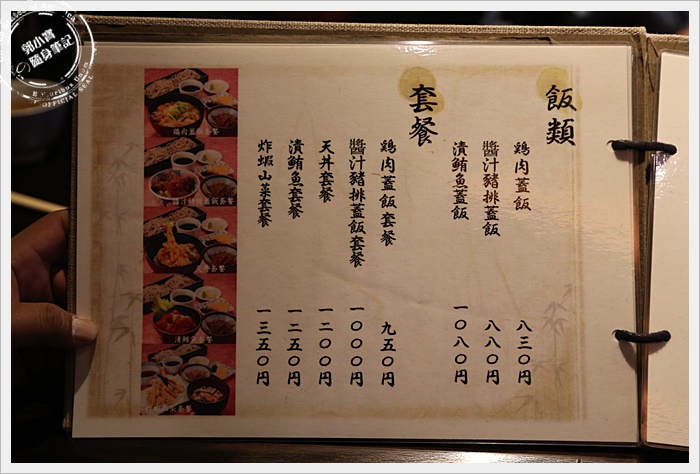 飯類
鶏肉蓋飯 八三〇円
醬汁豬排蓋飯 八八〇円
漬鮪魚蓋飯 一〇八〇円
套餐
鶏肉蓋飯套餐 九五〇円
醬汁豬排蓋飯套餐 一〇〇〇円
天丼套餐 一二〇〇円
漬鮪魚套餐 一二五〇円
炸蝦山菜套餐 一三五〇円
鶏肉蓋飯套餐
醬汁豬排蓋飯套餐
天丼套餐
漬鮪魚套餐
郭小寶の隨身筆記
OFFICIAL SEAL